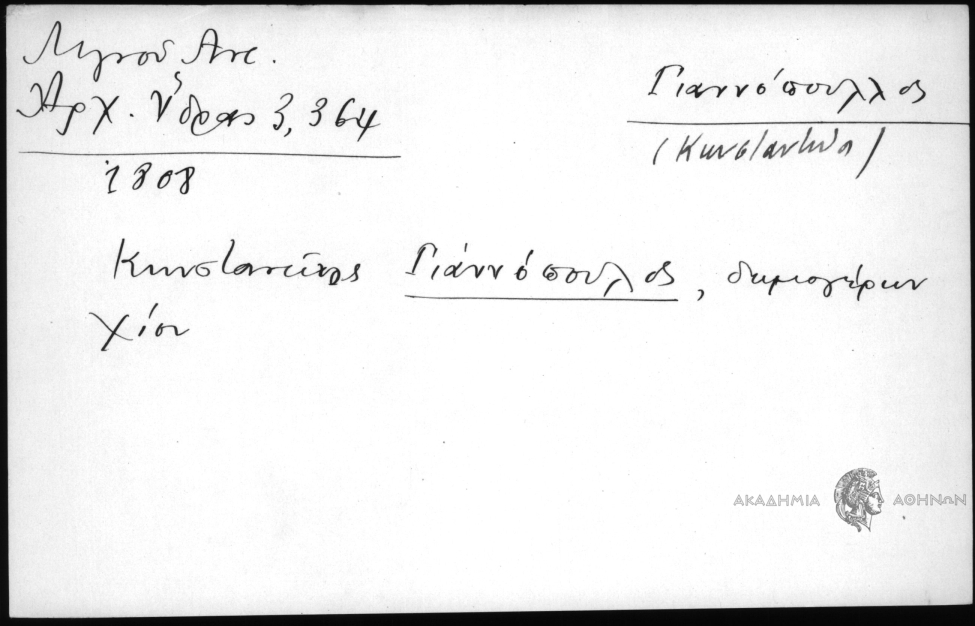 Λιγνού Αντ.
Ἀρχ. Ὕδρας 3, 364
1808
Γιαννόπουλλος
(Κωνσταντῖνος)
Κωνσταντῖνος Γιάννόπουλος, δημογέρων
Χίου
ΑΚΑΔΗΜΙΑ ΑΘΗΝΩΝ